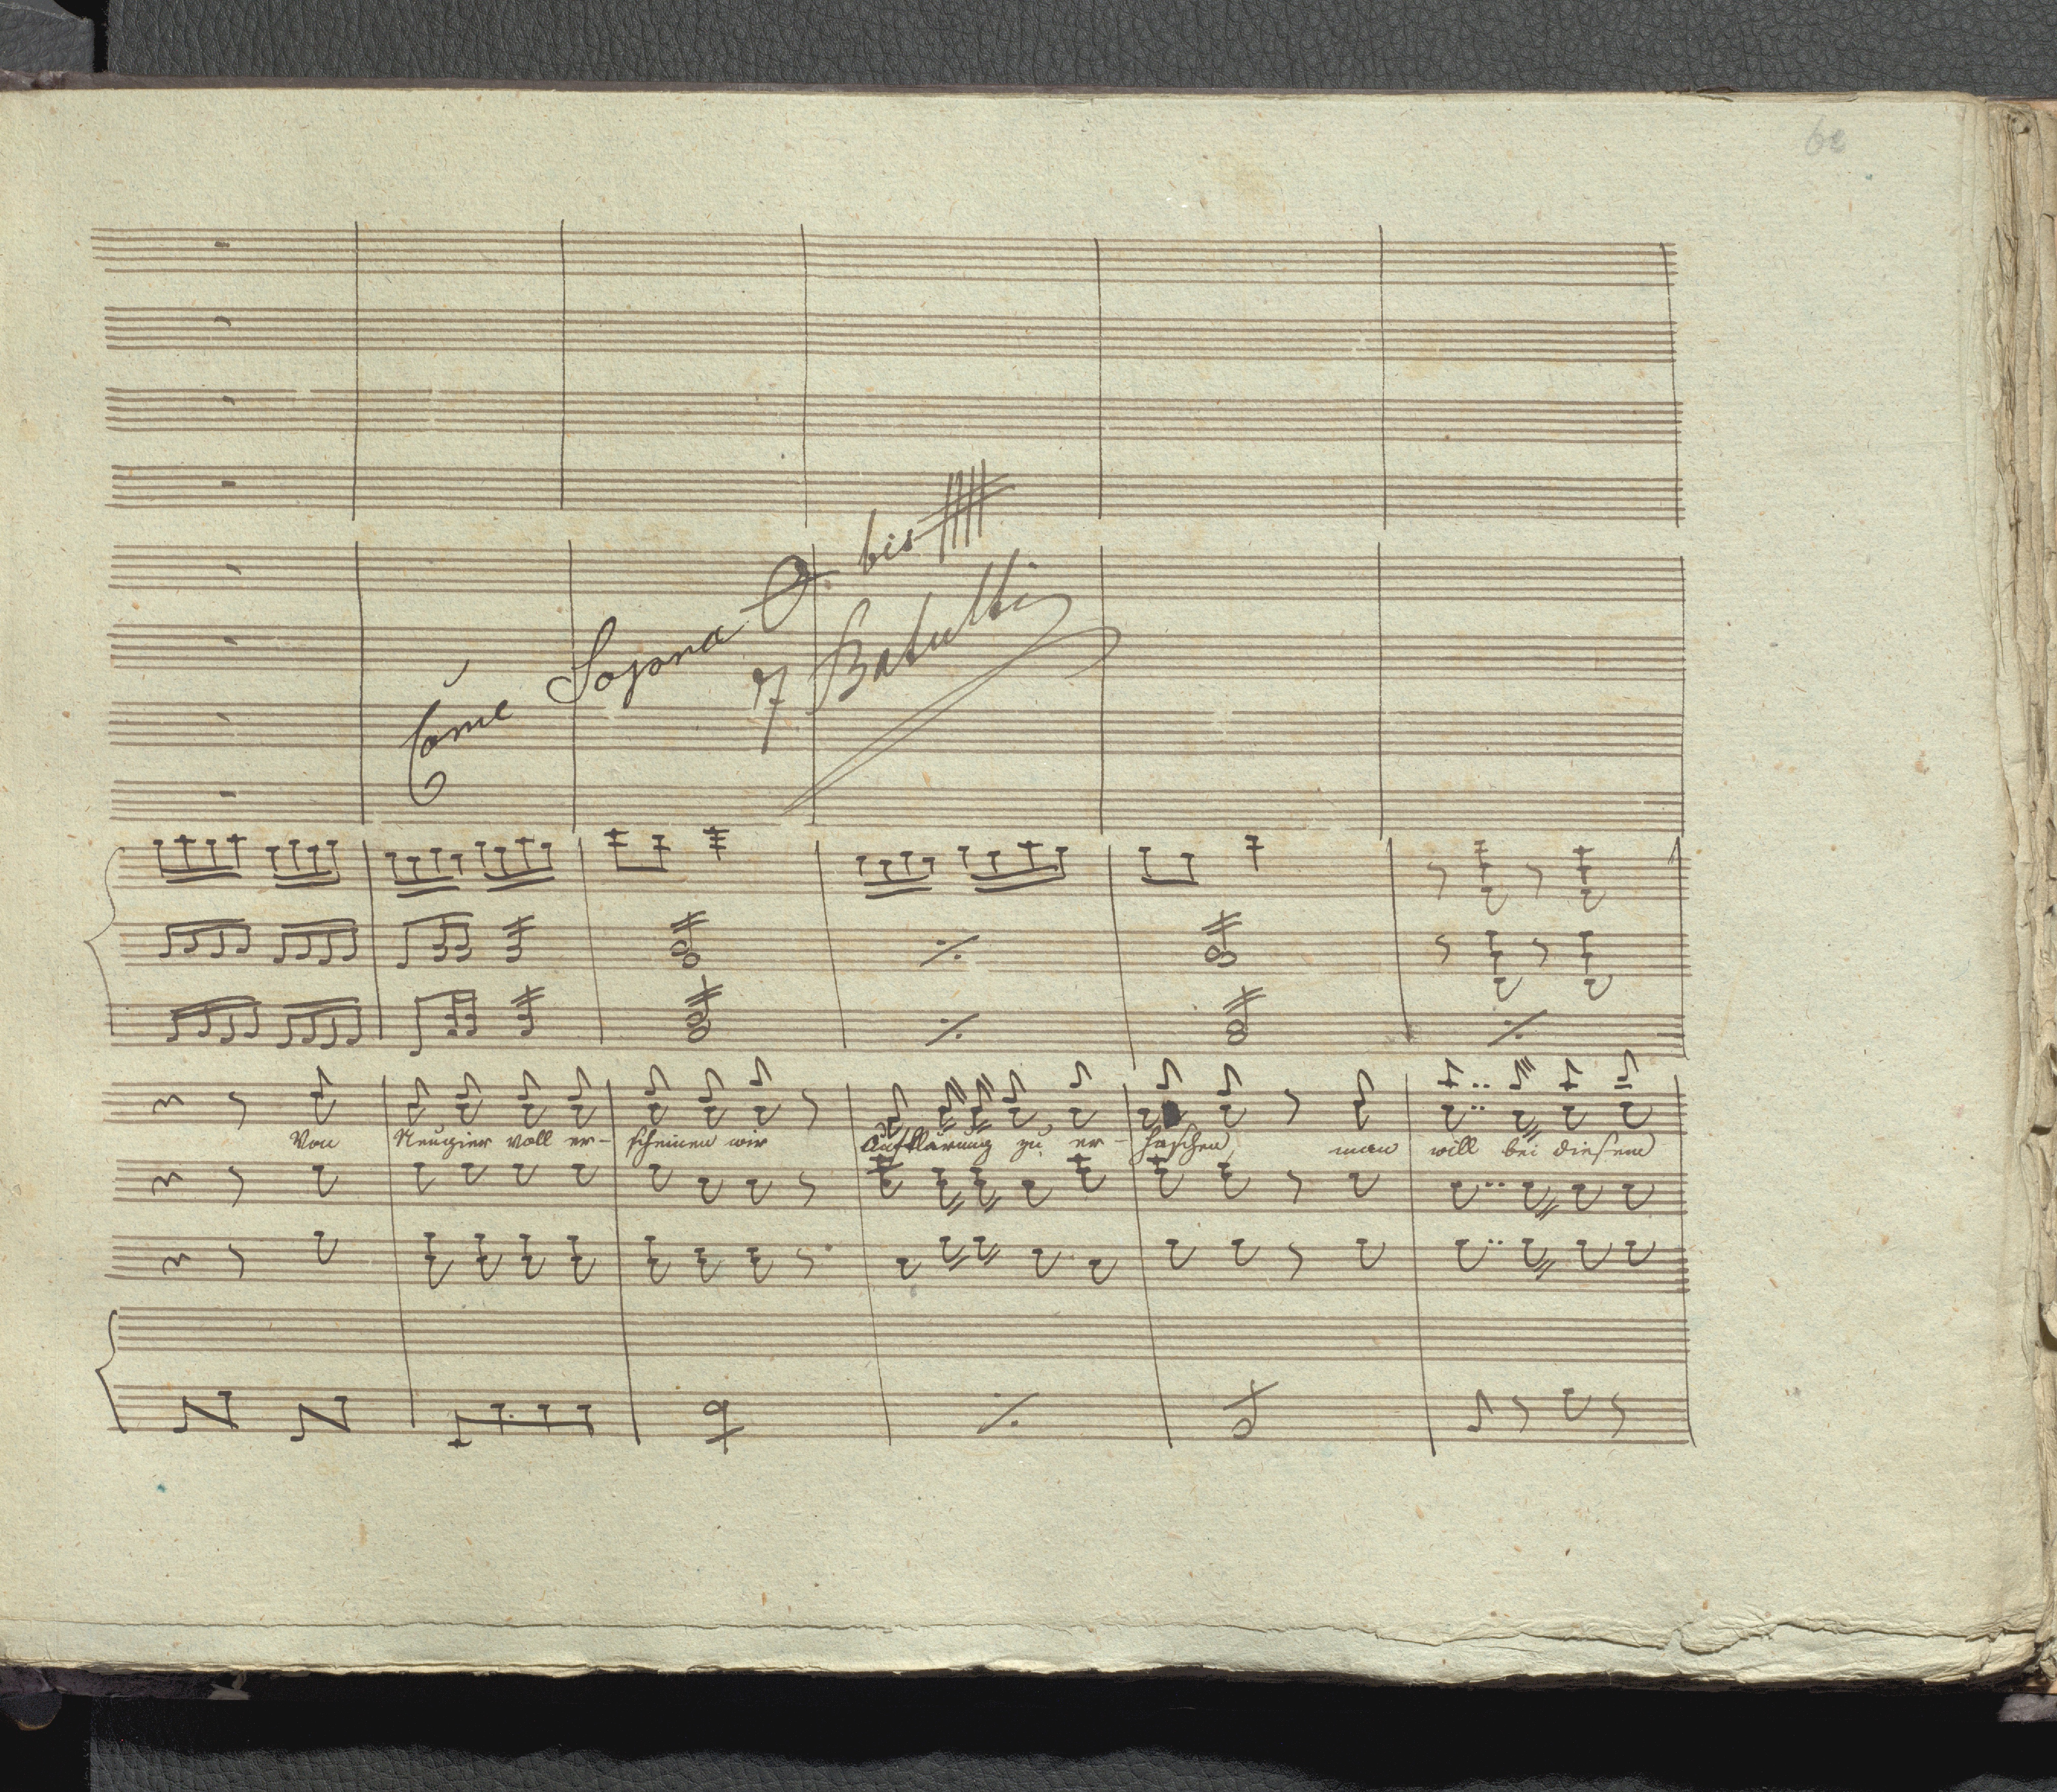 60
Come Sopra bis
17 Batutti
Von Neugier voll er- scheinen wir Aufklärung zu er- haschen man will bei diesem